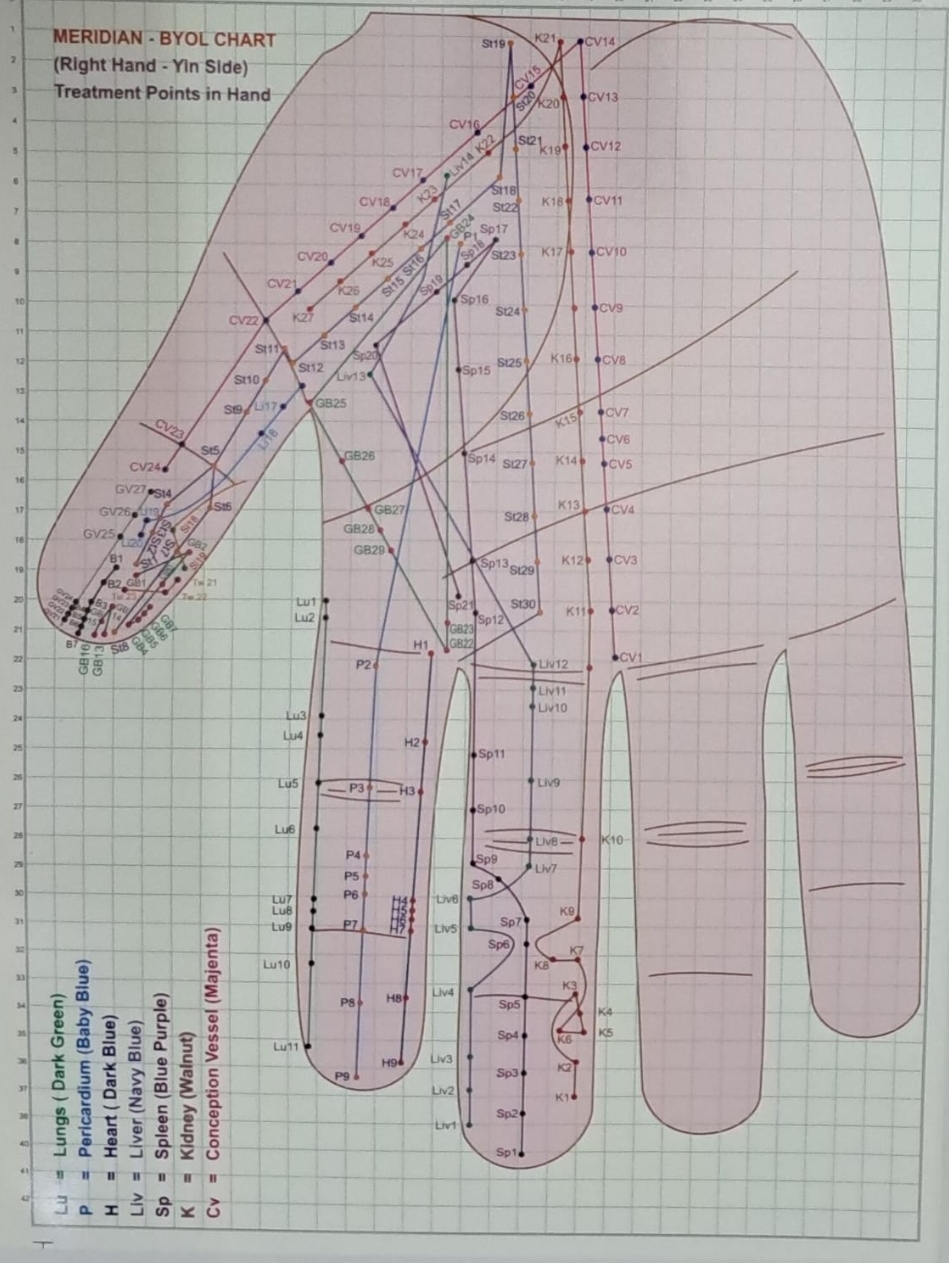 MERIDIAN - BYOL CHART
(Right Hand - Yin Side)
Treatment Points in Hand
St19
K21
CV14
CV15
St20
K20
CV13
CV16
K22
St21
K19
CV12
Liv14
CV17
K23
St18
CV18
St17
St22
K18
CV11
CV19
K24
GB24
P1
Sp17
CV20
K25
St16
Sp18
St23
K17
CV10
CV21
K26
St15
Sp19
Sp16
K27
St14
St24
CV9
CV22
St13
St11
Sp20
St12
Liv13
Sp15
St25
K16
CV8
St10
St9
Li17
GB25
Li18
St26
K15
CV7
CV23
St5
CV6
CV24
GB26
Sp14
St27
K14
CV5
GV27
St4
St6
GV26
Li19
GB27
St28
K13
CV4
GV25
Li20
GB28
GB29
B1
Sp13
St29
K12
CV3
B2
GB1
Tw 21
Tw 22
Tw 23
B3
Lu1
Lu2
Sp21
Sp12
St30
K11
CV2
GB23
GB22
B7
GB16
GB13
St8
GB4
GB5
GB6
GB7
H1
P2
Liv12
CV1
Liv11
Liv10
Lu3
Lu4
H2
Sp11
Lu5
P3
H3
Liv9
Sp10
Lu6
Liv8
K10
P4
Sp9
Liv7
P5
Sp8
P6
Lu7
Lu8
Lu9
H4
H7
P7
Liv6
Liv5
Sp7
K9
Sp6
K7
K8
Lu10
Liv4
K3
P8
H8
Sp5
K4
K5
K6
Sp4
Lu11
H9
P9
Liv3
Sp3
K2
Liv2
K1
Sp2
Liv1
Sp1
Lu = Lungs ( Dark Green)
P = Pericardium (Baby Blue)
H = Heart ( Dark Blue)
Liv = Liver (Navy Blue)
Sp = Spleen (Blue Purple)
K = Kidney (Walnut)
Cv = Conception Vessel (Majenta)